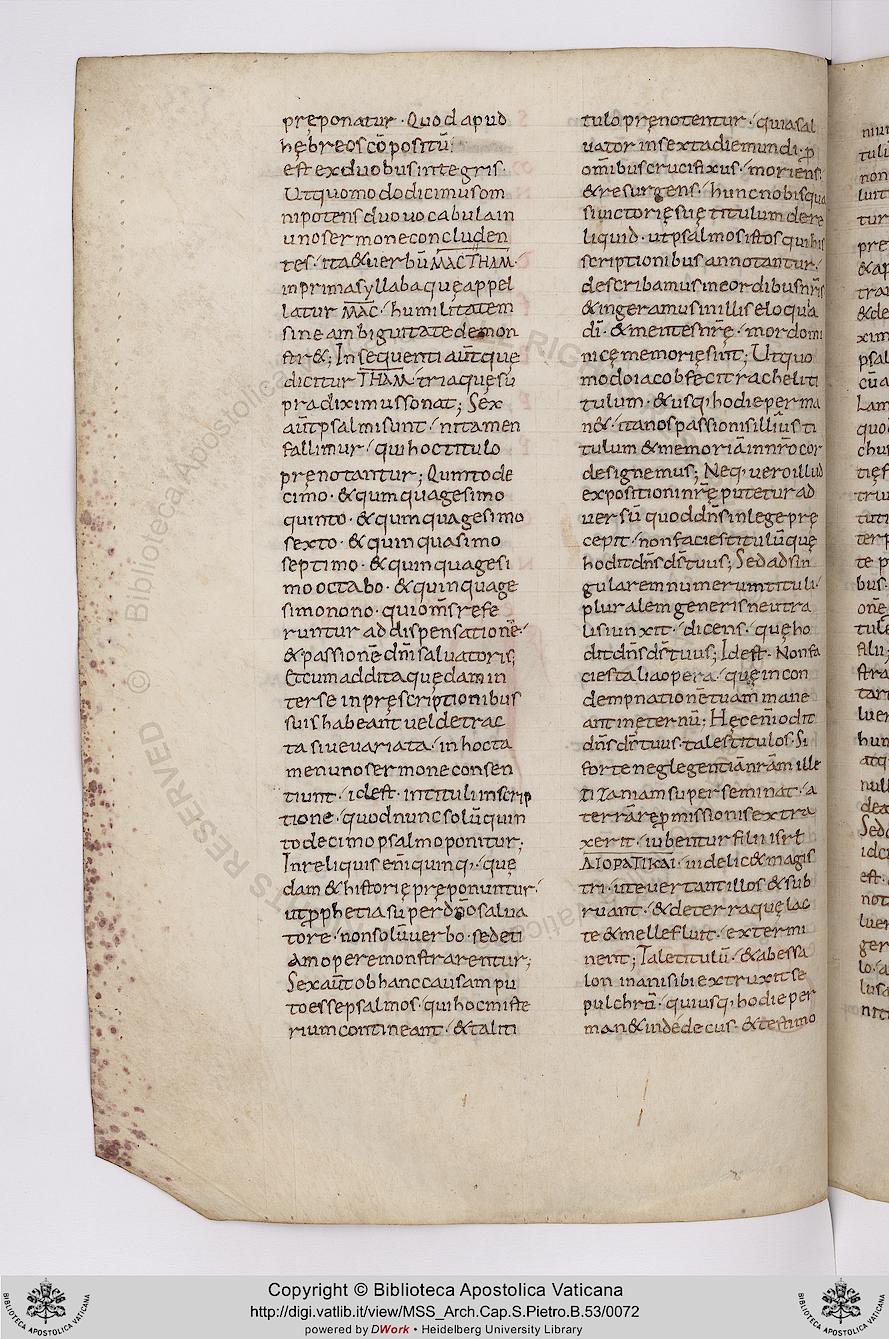 pręponatur · Quod apud
hębreos cō positū;
est ex duobus integris ·
Ut quomodo dicimus om
nipotens duo uocabula in
uno sermone concluden
tes · ita & uerbū MACTHAM ·
in prima syllaba que appel
latur MAC · humilitatem
sine ambiguitate demon
str&; In sequenti aūt quę
dicitur THAM · triaque sū
pra diximus sonat; Sex
aūt psalmi sunt · ni tamen
fallimur · qui hoc titulo
pręnotantur; Quinto de
cimo · & quinquagesimo
quinto · & quinquagesimo
sexto · & quinquasimo
septimo · & quinquagesi
mo octabo · & quinquage
simo nono · qui om̄s refe
runtur ad dispensationē ·
& passionē dn̄i saluatoris;
Et cum addita quędam in
terse in pręscriptionibus
suis habeant uel detrac
ta siue uariata · in hoc ta
men uno sermone consen
tiunt · idest · in tituli inscrip
tione · quod nunc solū quin
to decimo psalmo ponitur;
In reliquis eni quinq; · quę
dam & historię pręponuntur ·
ut pphetia sup er dn̄o salua
tore · non solū uerbo · sed eti
am opere monstrarentur;
Sex aūt ob hanc causam pu
to esse psalmos · qui hoc miste
rium contineant · & tali ti
tulo pręnotentur · quia sal
uator in sexta die mundi · p
om̄ibus crucifixus · moriens ·
& resurgens · hunc nobis quasi
si uictorię suę titulum dere
liquid · ut psalmos istos qui his
scriptionibus annotantur ·
describamus in cordibus nr̄is
& ingeramus in illis eloquia
dī · & mentes nrę̄ · mor domi
nicę memorię sint; Ut quo
modo iacob fecit racheli ti
tulum · & usq; hodie perma
n& · ita nos passionis illius ti
tulum & memoriā in nr̄o cor
de signemus; Neq; uero illud
expositioni nrę̄ putetur ad
uersū quod dn̄s in lege prę
cepit · non facies titulū quę
hodit dn̄s ds̄ tuus; Sed ad sin
gularem numerum tituli ·
pluralem generis neutra
lis iunxit · dicens · quę ho
dit dn̄s ds̄ tuus; Idest · Non fa
cies talia opera · quę in con
dempnationē tuam mane
ant in eternū; Hęc eni odit
dn̄s ds̄ tuus · tales titulos · Si
forte neglegentiā nrām ille
ZIZaniam superseminat · a
terra rępmissionis extra
xerit · iubentur filii isrł
ΔΙΟΡΑΤΙΚΑΙ · uidelic& magis
tri · ut euertant illos & sub
ruant · & de terra quę lac
te & melle fluit · extermi
nent; Tale titulū · & abessa
lon inanisibi extruxit se
pulchrū · qui usq; hodie per
man& in dedecus · & testimo